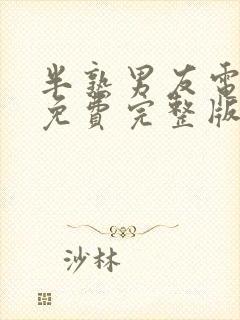 半熟男友電
免費完整版
沙林